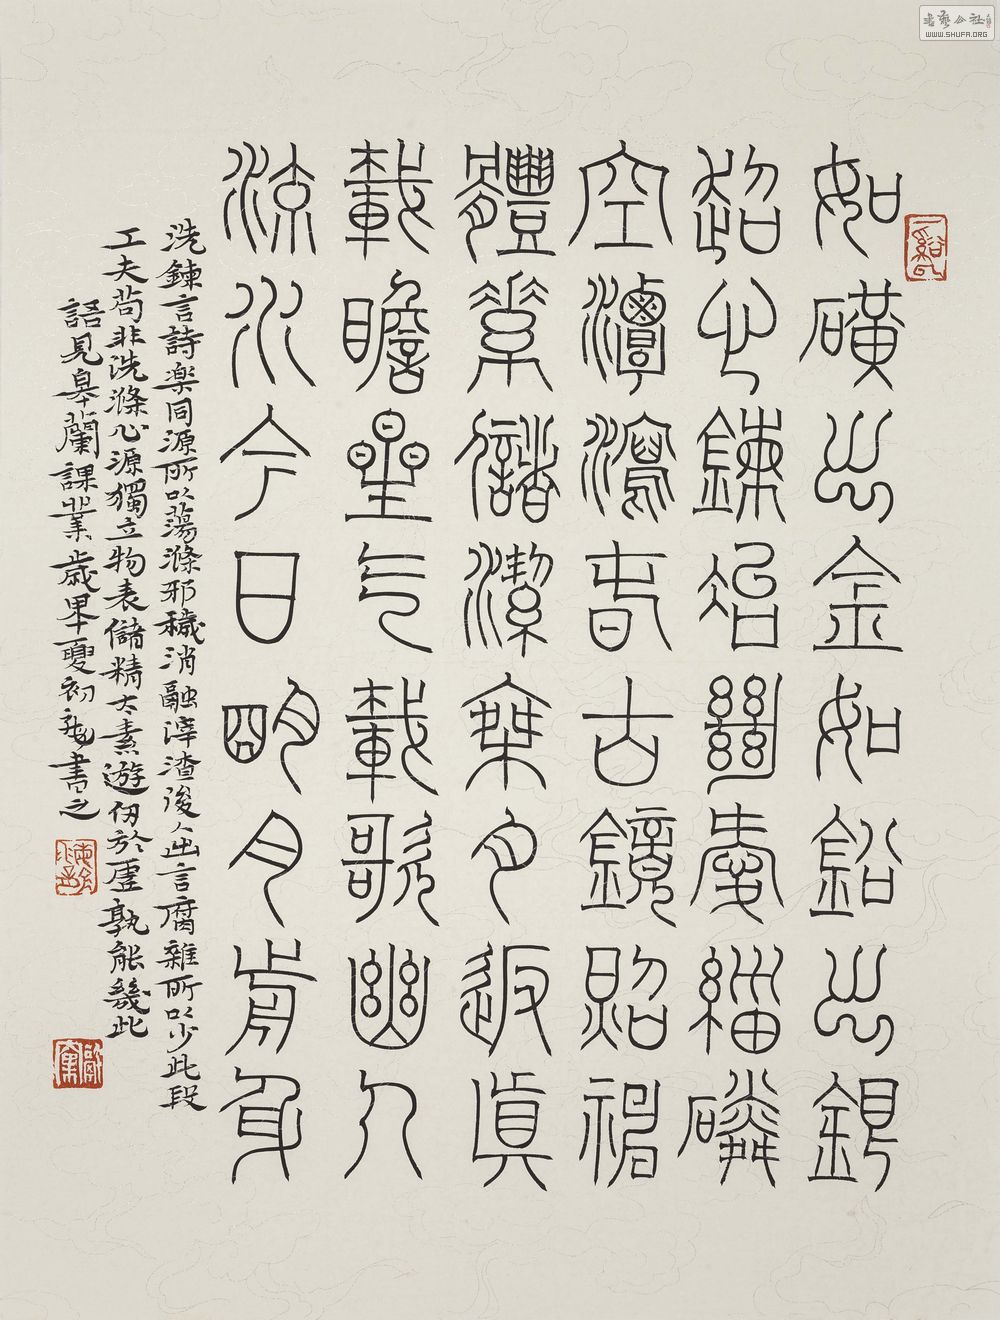 如礦出金如鉛出銀
超心鍊冶絕愛緇磷
空潭瀉春古鏡照神
體素儲潔乘月返真
載瞻星气載歌幽人
流水今日明月前身
洗鍊言詩楽同源所以蕩滌邪穢消融滓渣後人出言腐雜所以少此段
工夫苟非洗滌心源獨立物表儲精太素遊仞於虛孰能幾此
語見皋蘭課業歲畢夏初書之
書藝公社
WWW.SHUFA.ORG